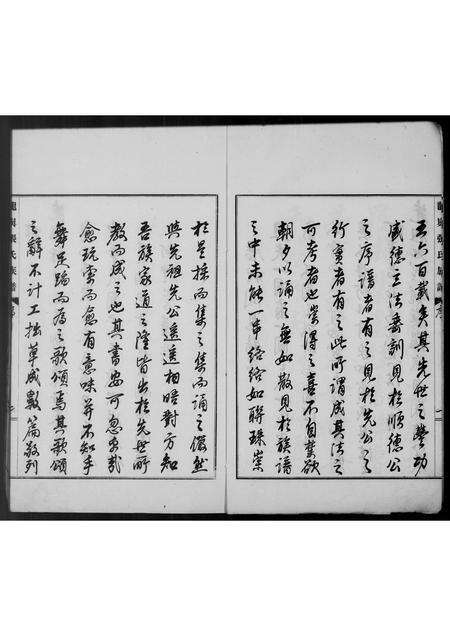 五六百載矣其先世之豐功
盛德立法垂訓見於順德公
之序譜者有之見於先公之
行實者有之此所謂咸其法之
可考者也崇得之喜不自禁欲
朝夕以誦之無如散見於族譜
之中未能一串絡絡如聯珠崇
於是採而集之集而誦之儼然
與先祖先公遙遙相晤對方知
吾族家道之隆皆出於先世所
教而成之也其書安可忽乎哉
愈玩索而愈有意味并不知手
舞足蹈而為之歌頌焉其歌頌
之辭不計工拙草成數篇敬列